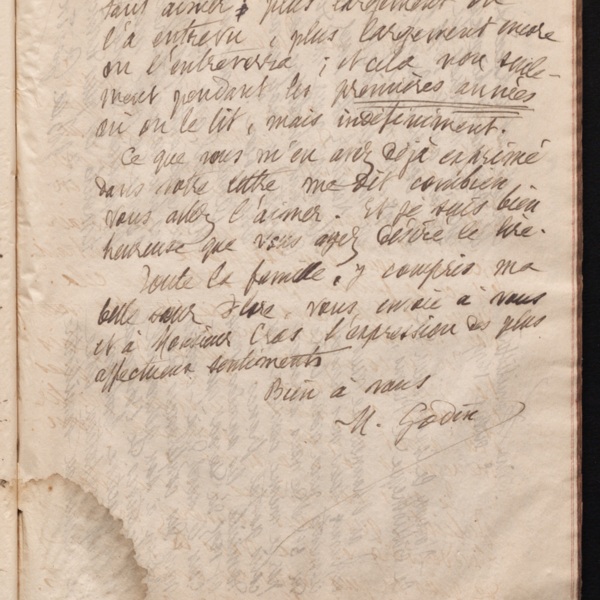 tant aimer; plus largement on
l'a entrevu, plus largement encore
on l'entreverra; et cela non seule-
ment pendant les premières années
où on le lit, mais indéfiniment.
Ce que vous m'en avez déjà exprimé
dans votre lettre me dit combien
vous allez l'aimer. Et je suis bien
heureuse que vous ayez désiré le lire.
Toute la famille, y compris ma
belle sœur Flore, vous envoie à vous
et à Monsieur Cros l'expression des plus
affectueux sentiments
Bien à vous
M. Godin